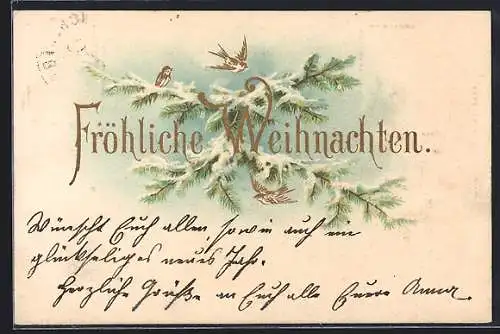 Fröhliche Weihnachten.
Wünscht Euch allen sowie auch ein
glückseliges neues Jahr.
Herzliche Grüße an Euch alle Euere Anna.